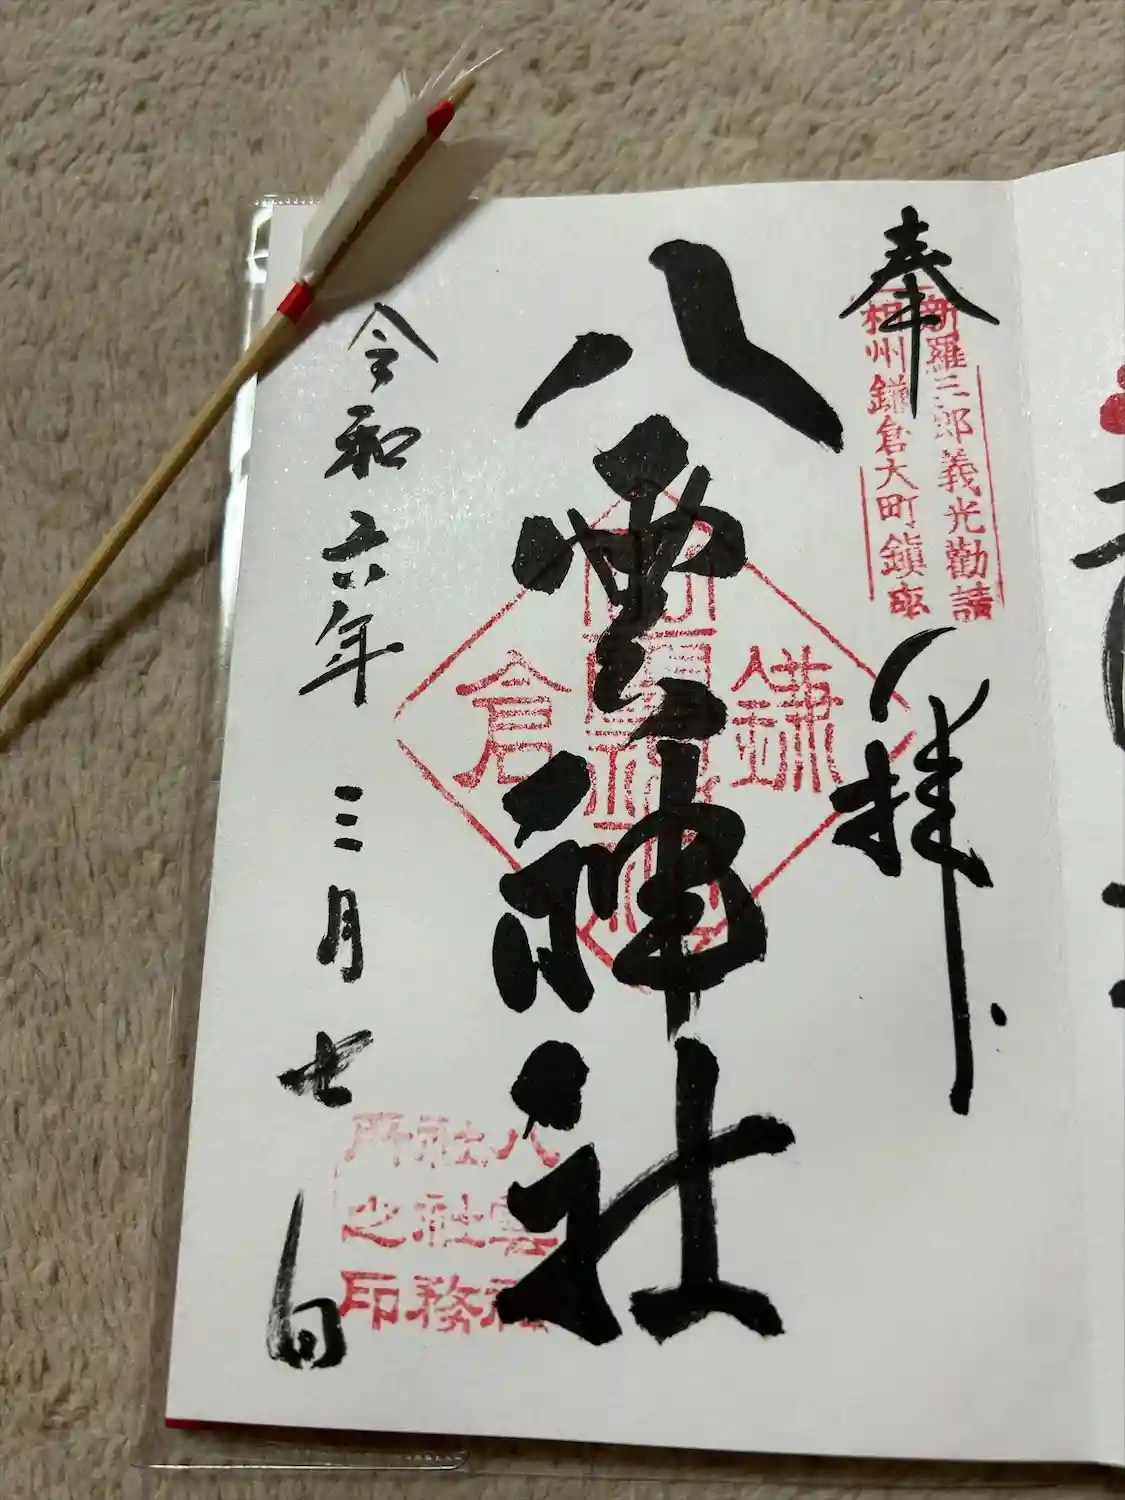 奉拝
新羅三郎義光勸請
相州鎌倉大町鎮座
八雲神社
鎌倉
八雲神社社務所之印
令和六年三月七日